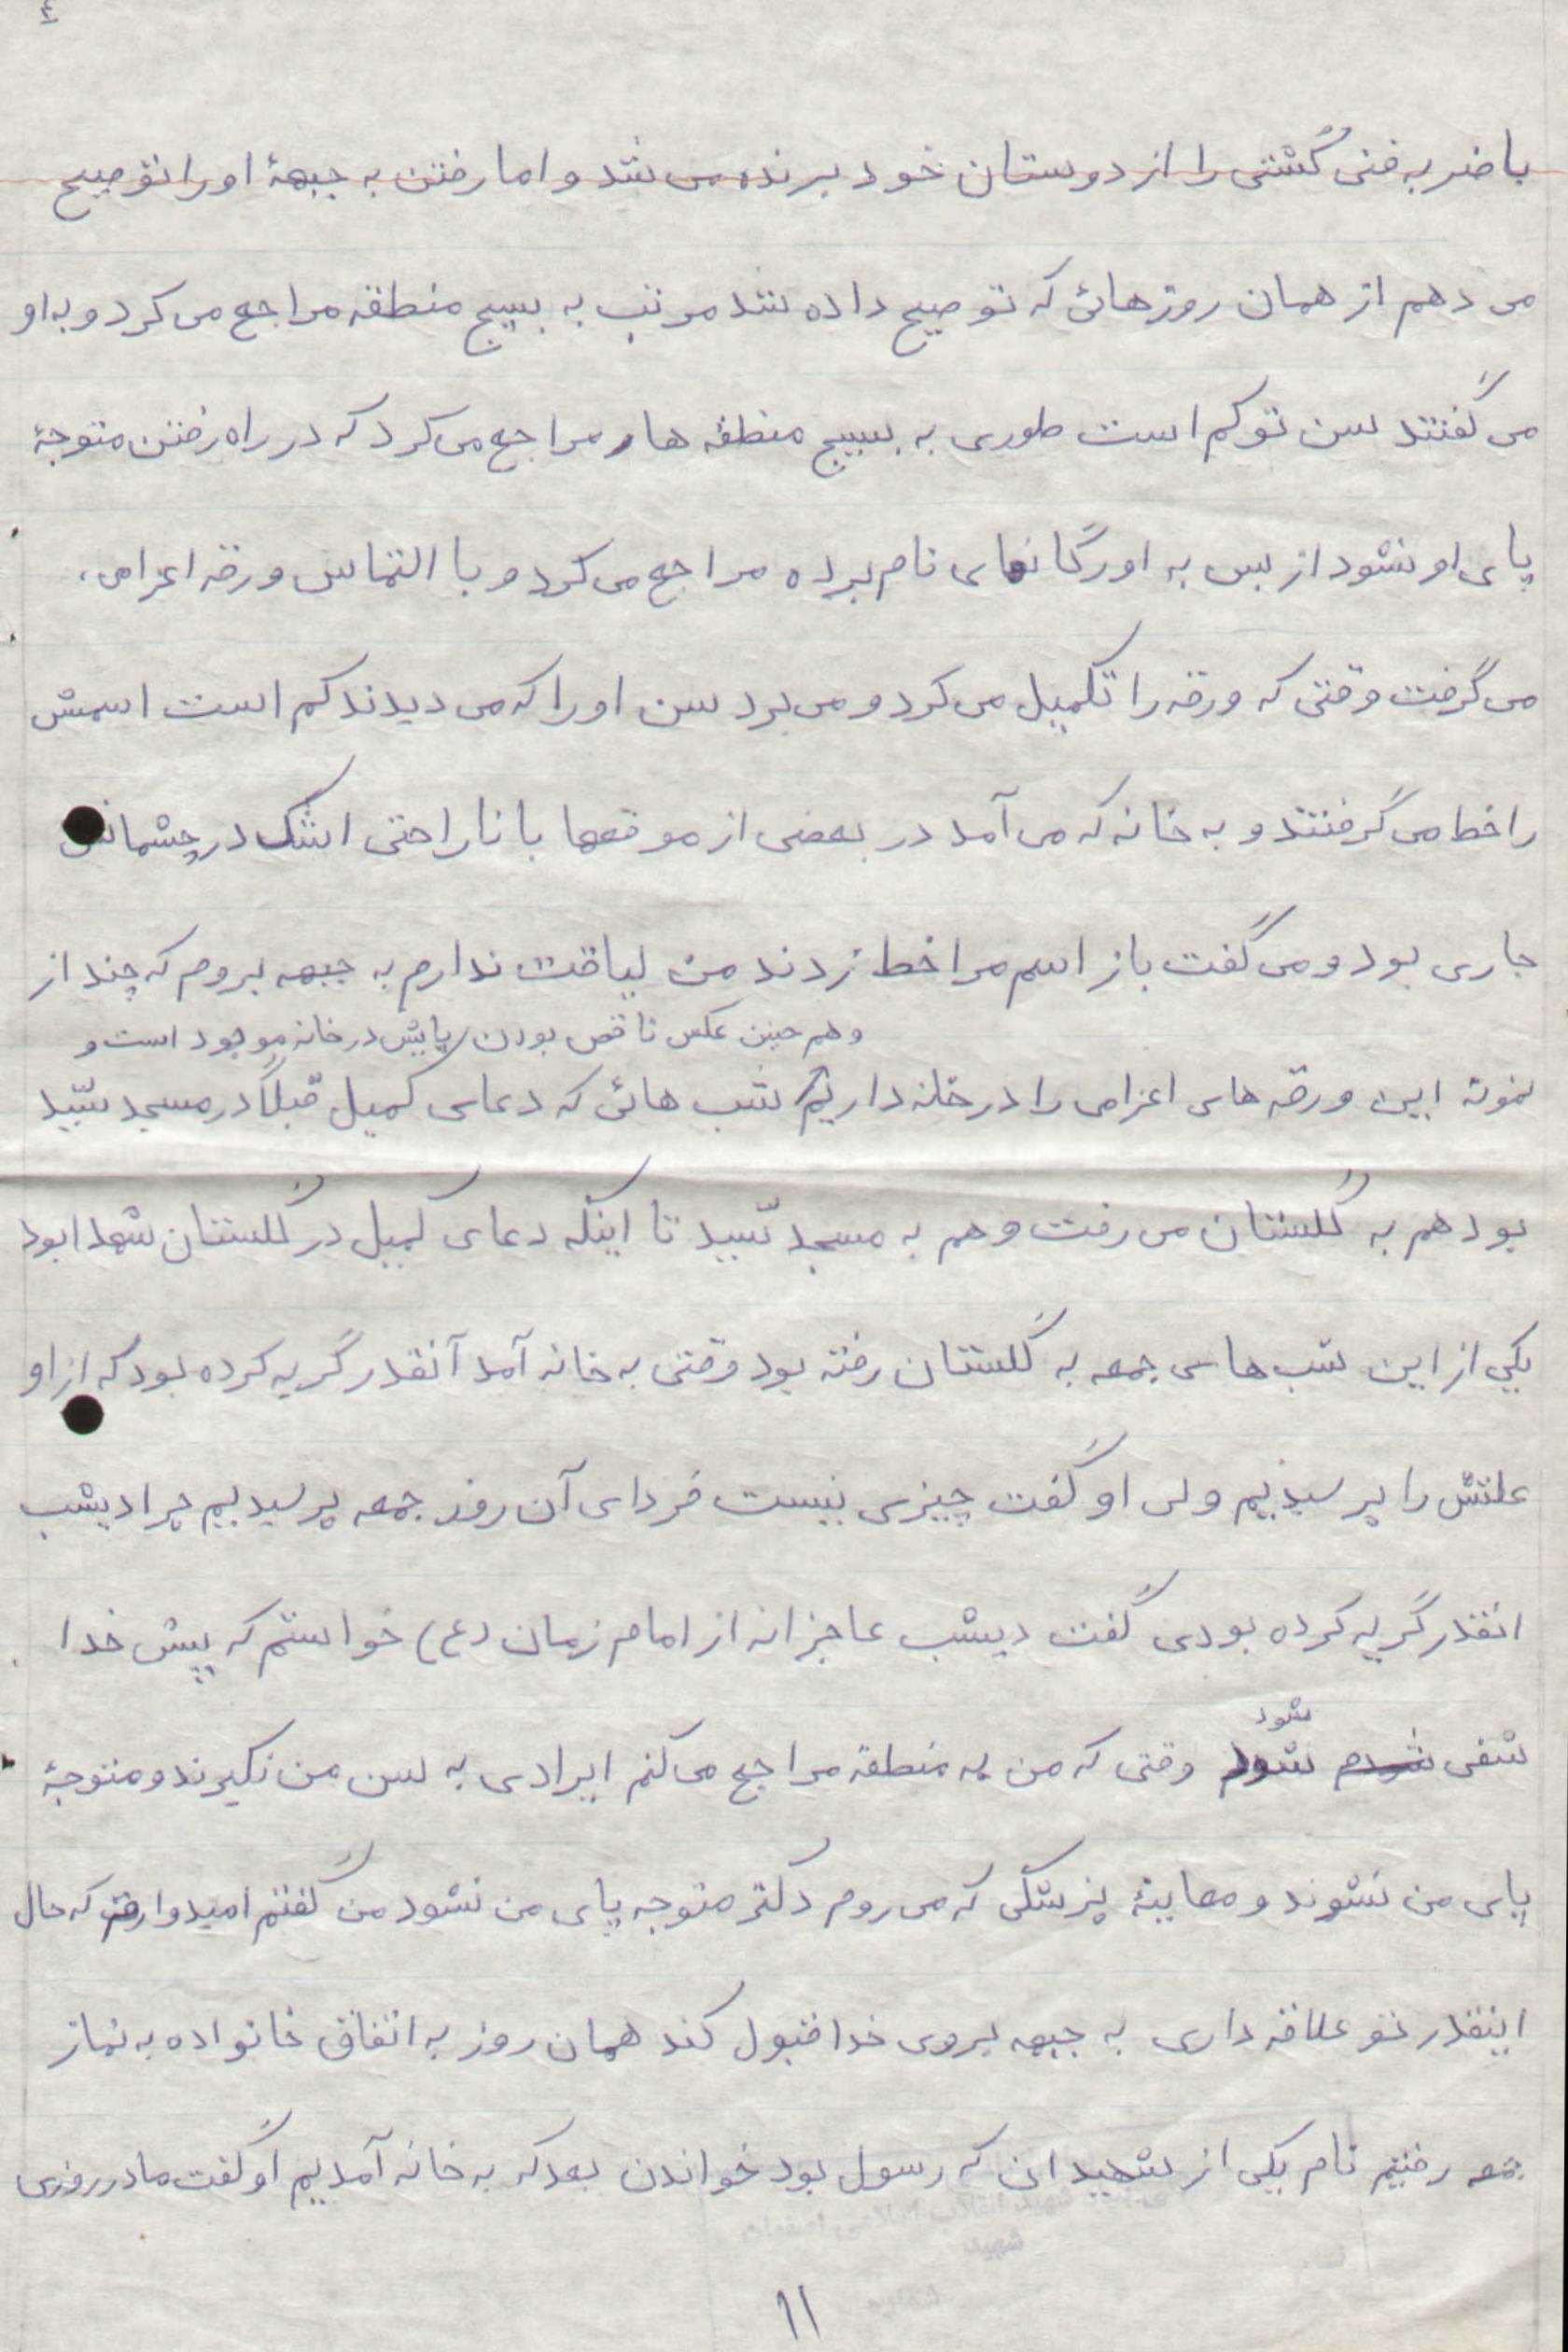 ٤
با ضربه فنی کُشتی را از دوستان خود برنده می شد و اما رفتن به جبههٔ او را توصیح
می دهم از همان روزهائی که توصیح داده شد مرتب به بسیج منطقه مراجع می کرد و به او
می گفتند سن تو کم است طوری به بسیج منطقه ها مراجع می کرد که در راه رفتن متوجهٔ
پای او نشود از بس به اورگانهای نام برده مراجع می کرد و با التماس ورقه اعزامی
می گرفت وقتی که ورقه را تکمیل می کرد و می برد سن او را که می دیدند کم است اسمش
را خط می گرفتند و به خانه که می آمد در بعضی از موقعها با ناراحتی اشک در چشمانش
جاری بود و می گفت باز اسم مرا خط زدند من لیاقت ندارم به جبهه بروم که چند از
و هم چنین عکس ناقص بودن پایش در خانه موجود است و
نمونه این ورقه های اعزامی را در خانه داریم شب هائی که دعای کمیل قبلاً در مسجد سیّد
بود هم به گلستان می رفت و هم به مسجد سیّد تا اینکه دعای کمیل در گلستان شهدا بود
یکی از این شب های جمعه به گلستان رفته بود وقتی به خانه آمد آنقدر گریه کرده بود که از او
علتش را پرسیدیم ولی او گفت چیزی نیست فردای آن روز جمعه پرسیدیم چرا دیشب
انقدر گریه کرده بودی گفت دیشب عاجزانه از امام زمان (ع) خواستم که پیش خدا
شود
شفی شدم شود وقتی که من به منطقه مراجع می کنم ایرادی به سن من نگیرند و متوجهٔ
پای من نشوند و معاینهٔ پزشکی که می روم دکتر متوجه پای من نشود من گفتم امیدوارم که حال
اینقدر تو علاقه داری به جبهه بروی خدا قبول کند همان روز به اتفاق خانواده به نماز
جمعه رفتیم نام یکی از شهیدان که رسول بود خواندن بعد که به خانه آمدیم او گفت مادر روزی
١١